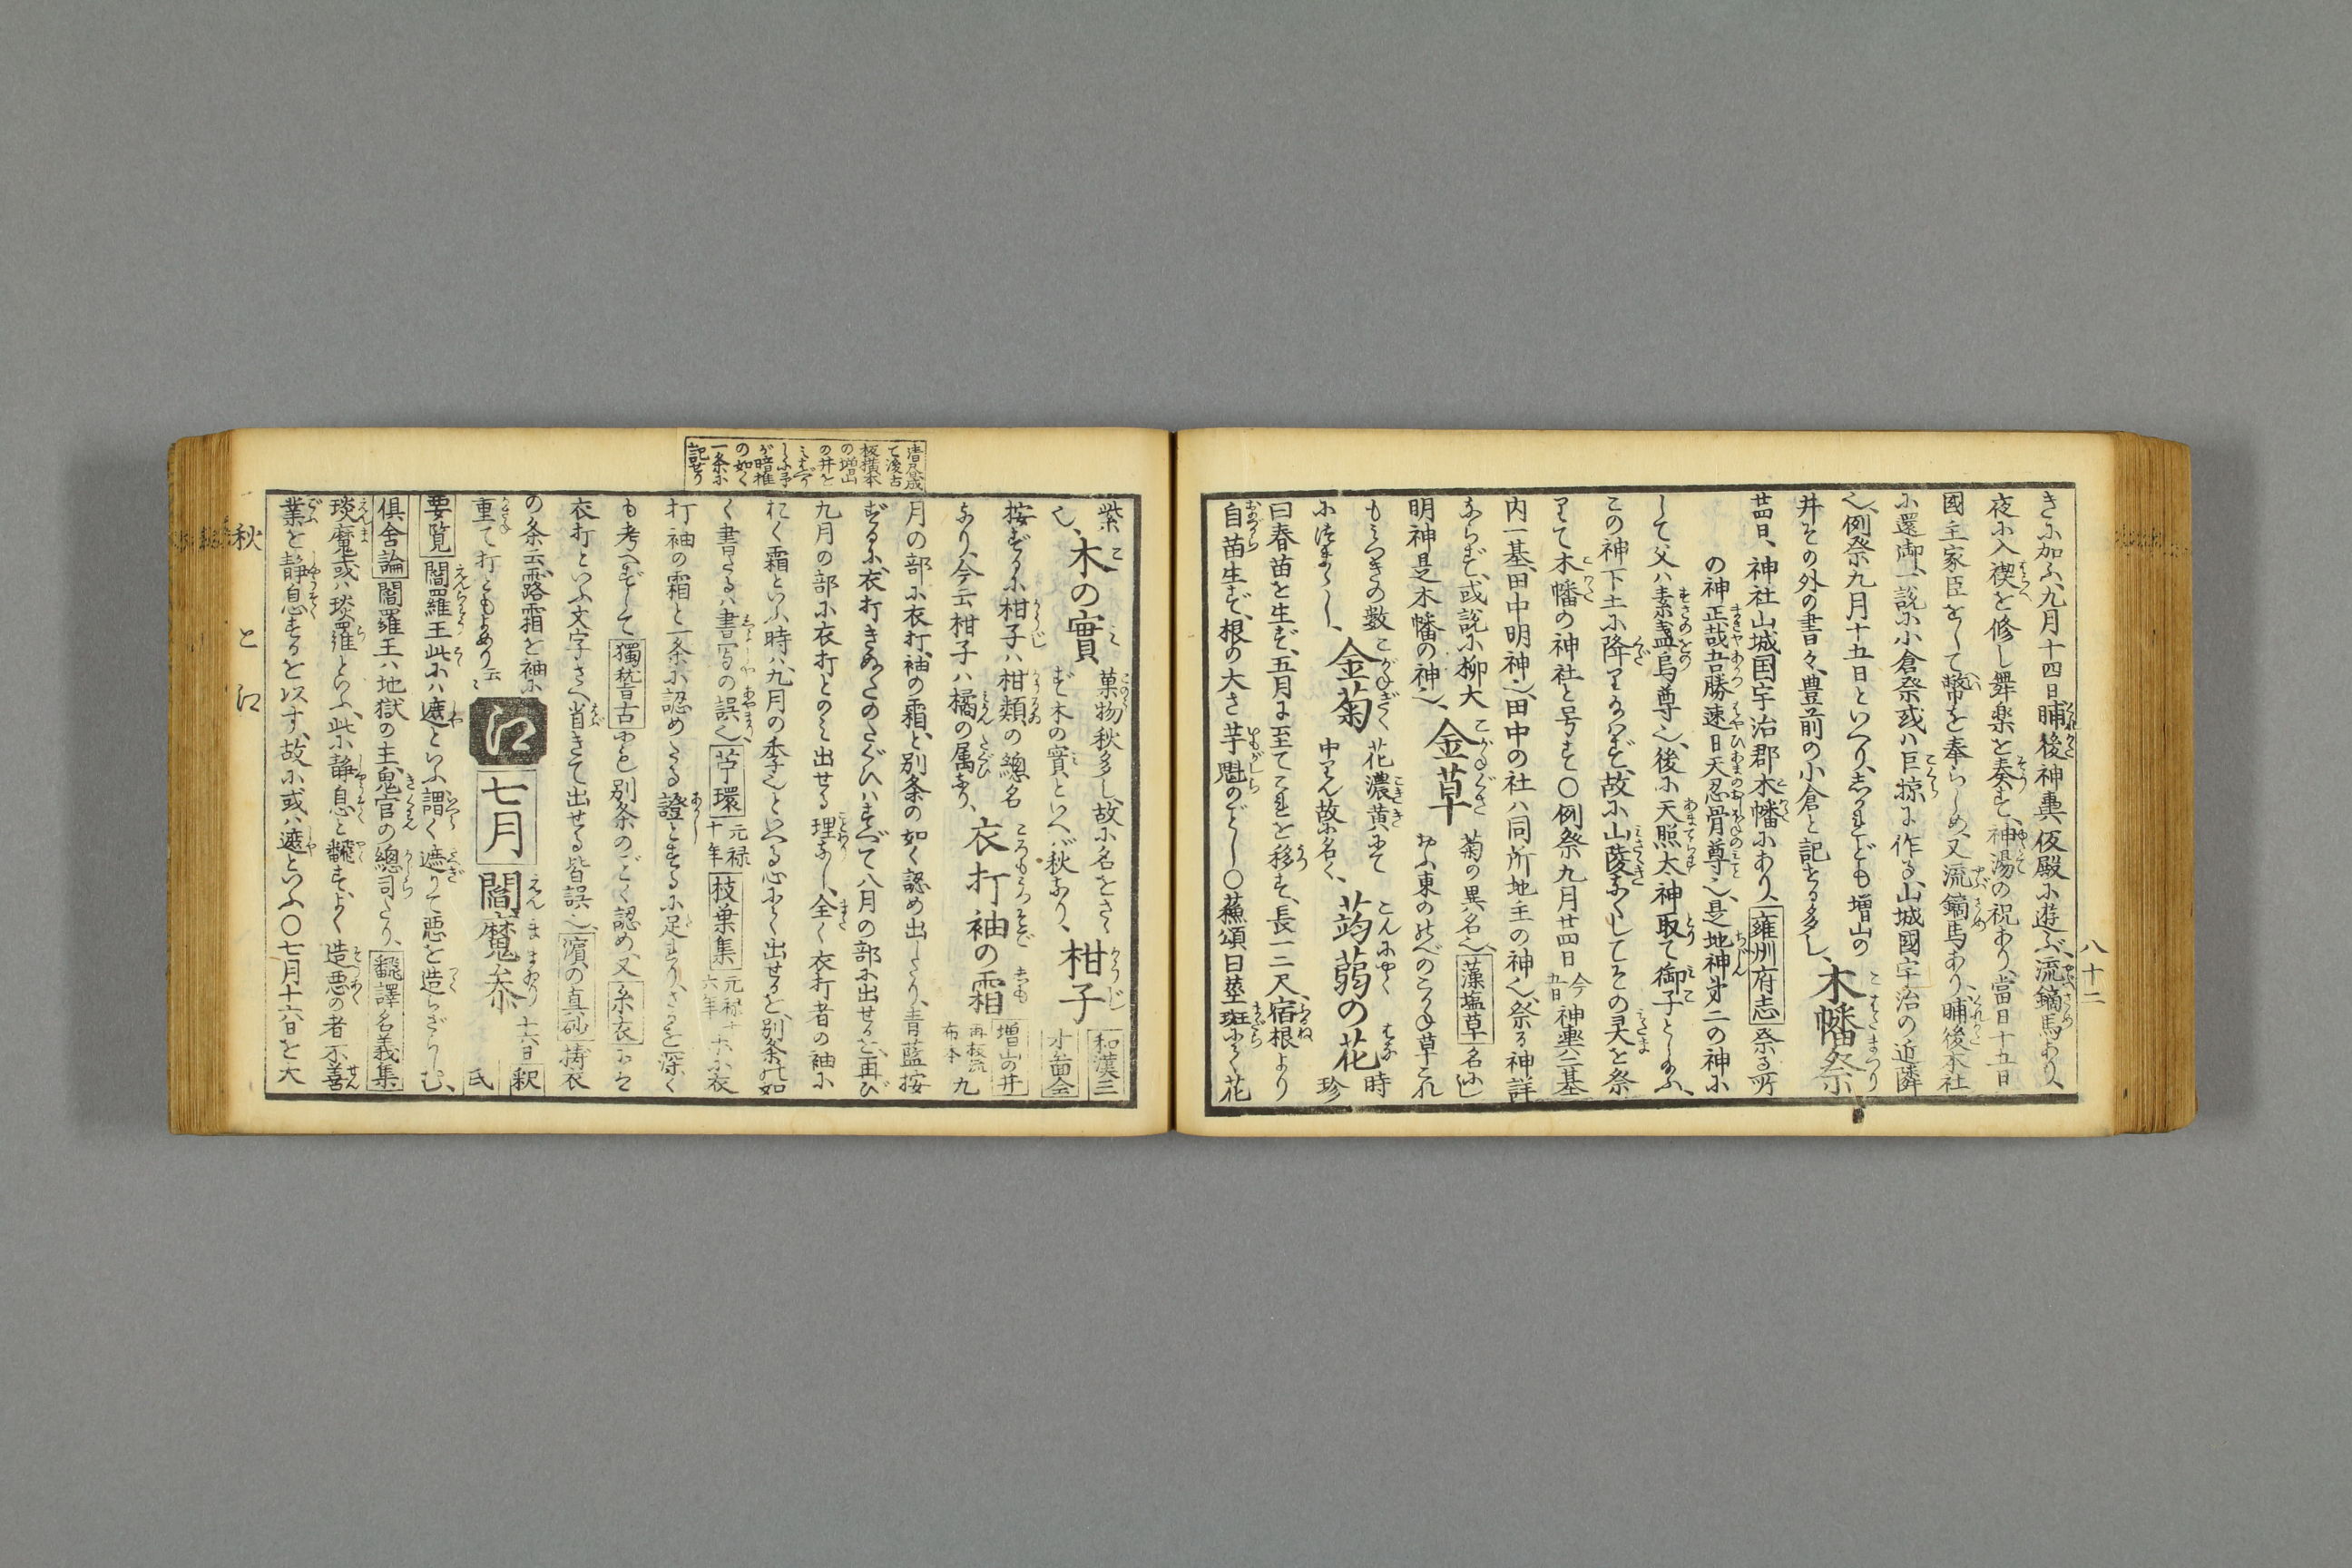 八十二
きに加ふ、九月十四日晡後神輿仮殿に遊ぶ、流鏑馬あり、
夜に入禊を修し舞楽を奏す、神湯の祝あり、當日十五日
國主家臣をして幣を奉らしめ、又流鏑馬あり、晡後本社
に還御、一説に小倉祭或ハ巨掠に作る、山城國宇治の近隣
也、例祭九月十五日といへり、しかれども増山の
井その外の書々、豊前の小倉と記せる多し、木幡祭
廿四日、神社山城国宇治郡木幡にあり、雍州府志祭る所
の神正哉吾勝速日天忍骨尊也、是地神第二の神に
して父ハ素盞烏尊也、後に天照太神取て御子としたまふ、
この神下土に降りたまはず、故に山陵なくしてその灵を祭
りて木幡の神社と号す○例祭九月廿四日今五日神輿六三基
内一基、田中明神也、田中の社ハ同所地主の神也、祭る神詳
ならず、或説に柳大
明神是木幡の神也、金草菊の異名也、藻塩草名にし
おふ東のはべのこがね草これ
もみつきの数
金菊花濃黄にて
中りん故に名く、
蒟蒻の花時珍
曰春苗を生ず、五月に至てこれを移す、長一二尺、宿根より
自苗生ず、根の大さ芋魁のごとし○蘓頌曰茎斑にして花
紫
也、木の實菓物秋多し、故に名をさゝ
ず木の實といへバ秋なり、柑子和漢三
才圖会
按ずるに柑子ハ柑類の總名
なり、今云柑子ハ橘の属なり、衣打袖の霜増山の井
再板流布本九
月の部に衣打、袖の霜、と別条の如く認め出したり、青藍按
ずるに、衣打きぬたのたぐひハすべて八月の部に出せるを、再び
九月の部に衣打とのミ出せる理なし、全く衣打者の袖に
おく霜といふ時ハ、九月の季也といへる心にて出せるを、別条の如
く書たるハ書写の誤也、苧環元禄十年枝葉集元禄十六年ホに衣
打袖の霜と一条に認めたる證とするに足れり、さるを深く
も考へずして獨稽古にも別条のごとく認め、又糸衣にも
衣打といふ文字さへ省きて出せる皆誤也、濱の真砂擣衣
の条云露霜を袖に
重て打ともよめり云々
江
七月
閻魔參十六日釈氏
要覧閻羅王此にハ遮といふ謂く遮りて悪を造らざらしむ、
倶舎論閻羅王ハ地獄の主鬼官の總司たり、飜譯名義集
琰魔或ハ琰羅といふ、此に静息と飜す、よく造悪の者不善
業を静息するを以す、故に或ハ遮といふ○七月十六日を大
書尽成
て後古
板横本
の増山
の井を
みしに予
が暗推
の如く
一条に
記せり
秋
こ
江